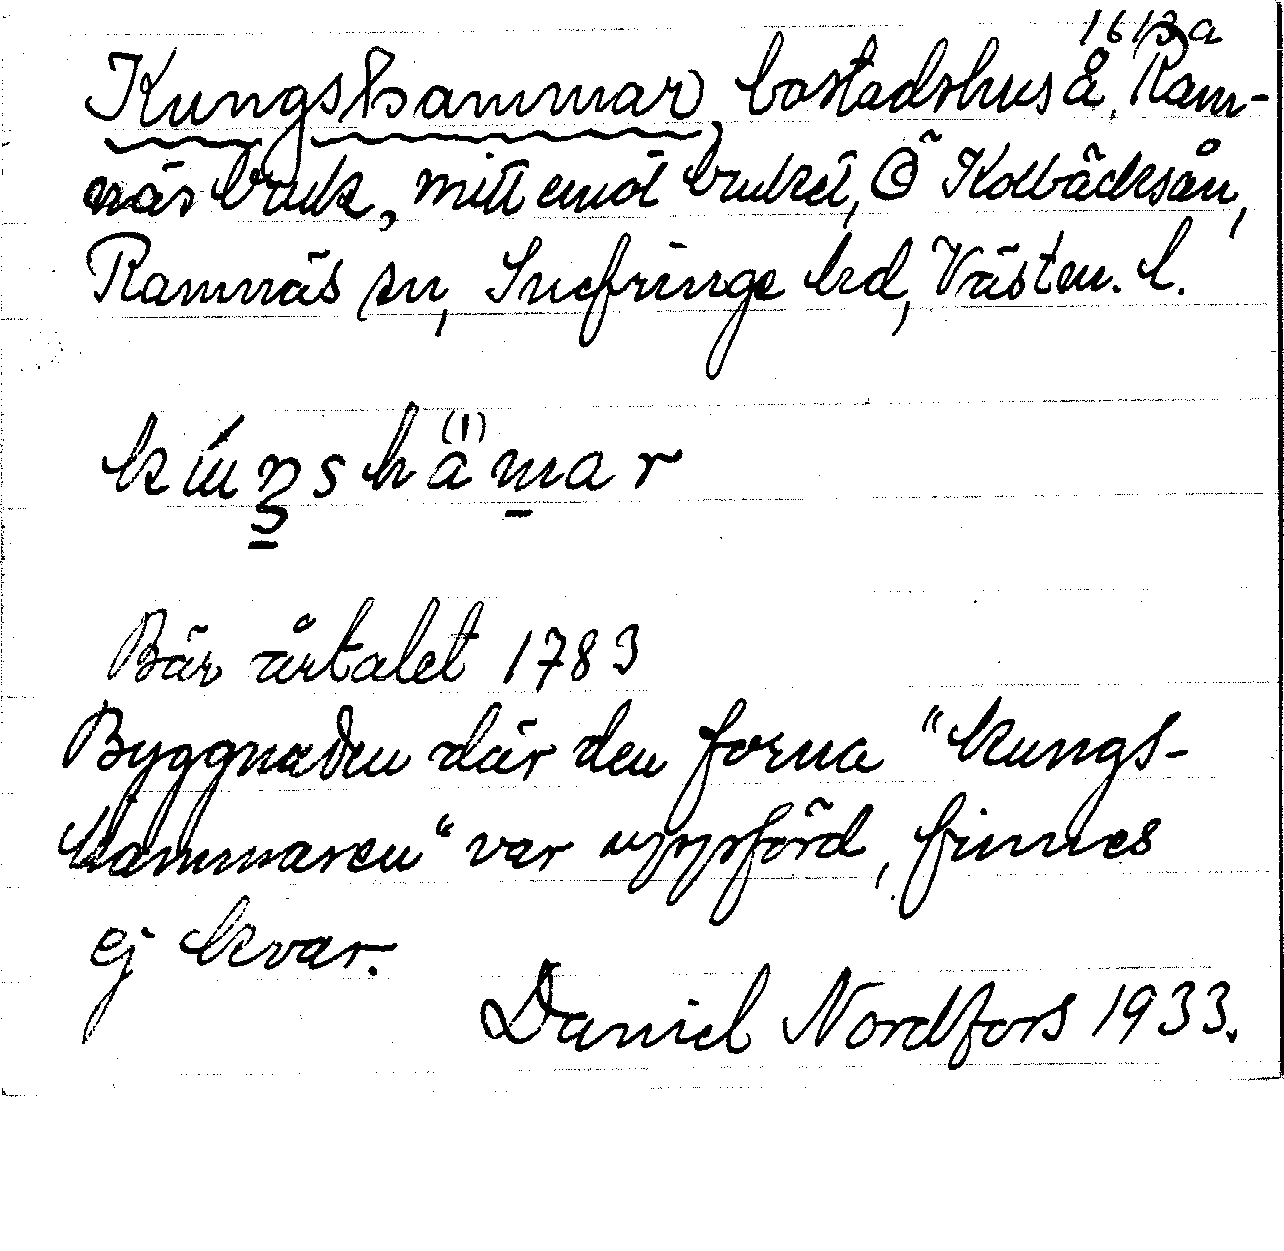 1613 a
Kungshammar, bostadshus å Ram-
näs bruk, mitt emot bruket, Ö Kolbäcksån,
Ramnäs sn, Snefringe hd, Västm. l.
kuŋshamar
Bär årtalet 1783
Byggnaden där den forna "kungs-
kammaren" var uppförd, finnes
ej kvar.
Daniel Nordfors 1933.